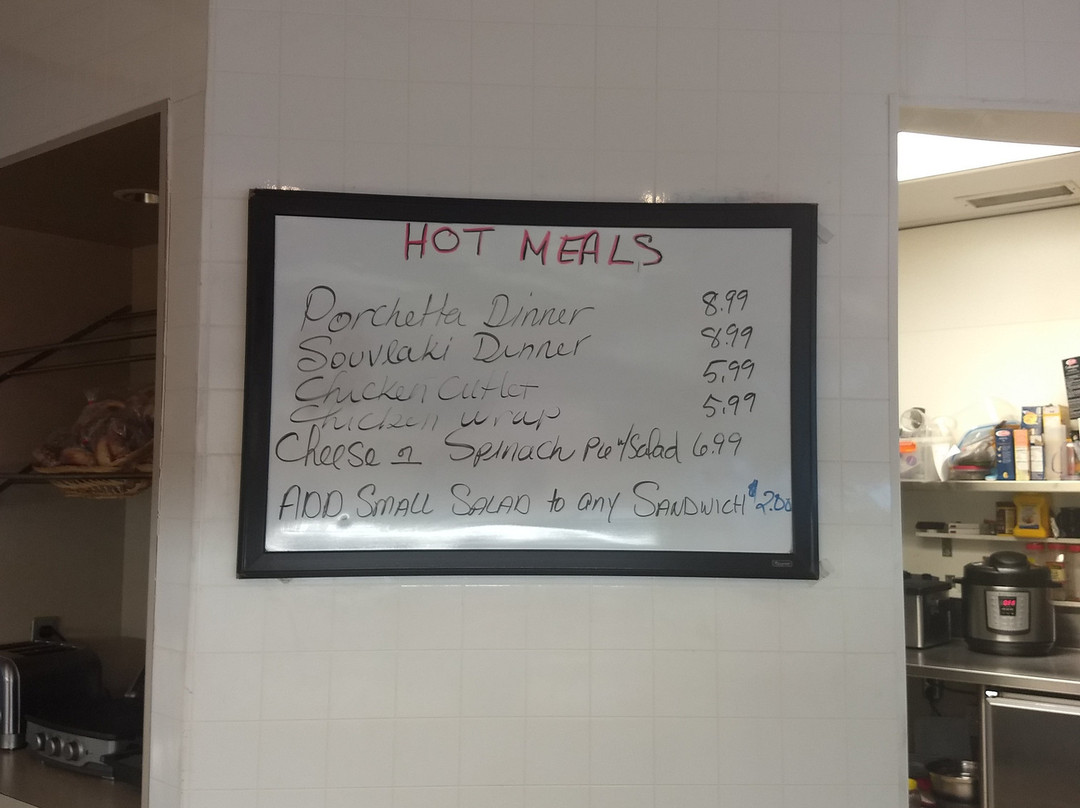 HOT MEALS
Porchetta Dinner 8.99
Souvlaki Dinner 8.99
Chicken Cutlet 5.99
Chicken Wrap 5.99
Cheese or Spinach Pie w/Salad 6.99
ADD SMALL SALAD to any SANDWICH $2.00